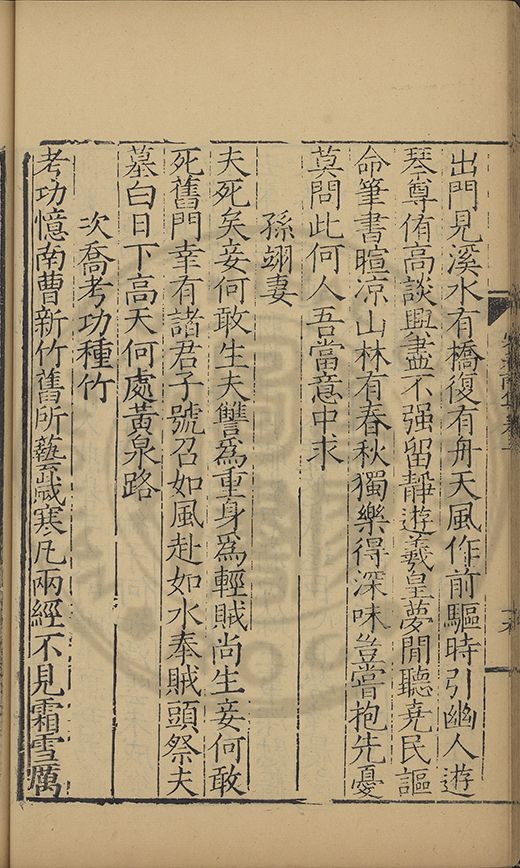 出門見溪水有橋復有舟天風作前驅時引幽人遊
琴尊侑高談興盡不强留靜遊羲皇夢閒聽堯民謳
命筆書暄凉山林有春秋獨樂得深味豈嘗抱先憂
莫問此何人吾當意中求
孫翊妻
夫死矣妾何敢生夫讐為重身為輕賊尚生妾何敢
死舊門幸有諸君子號召如風赴如水奉賊頭祭夫
墓白日下高天何處黃泉路
次喬考功種竹
考功憶南曹新竹舊所藝歲寒凡兩經不見霜雪厲